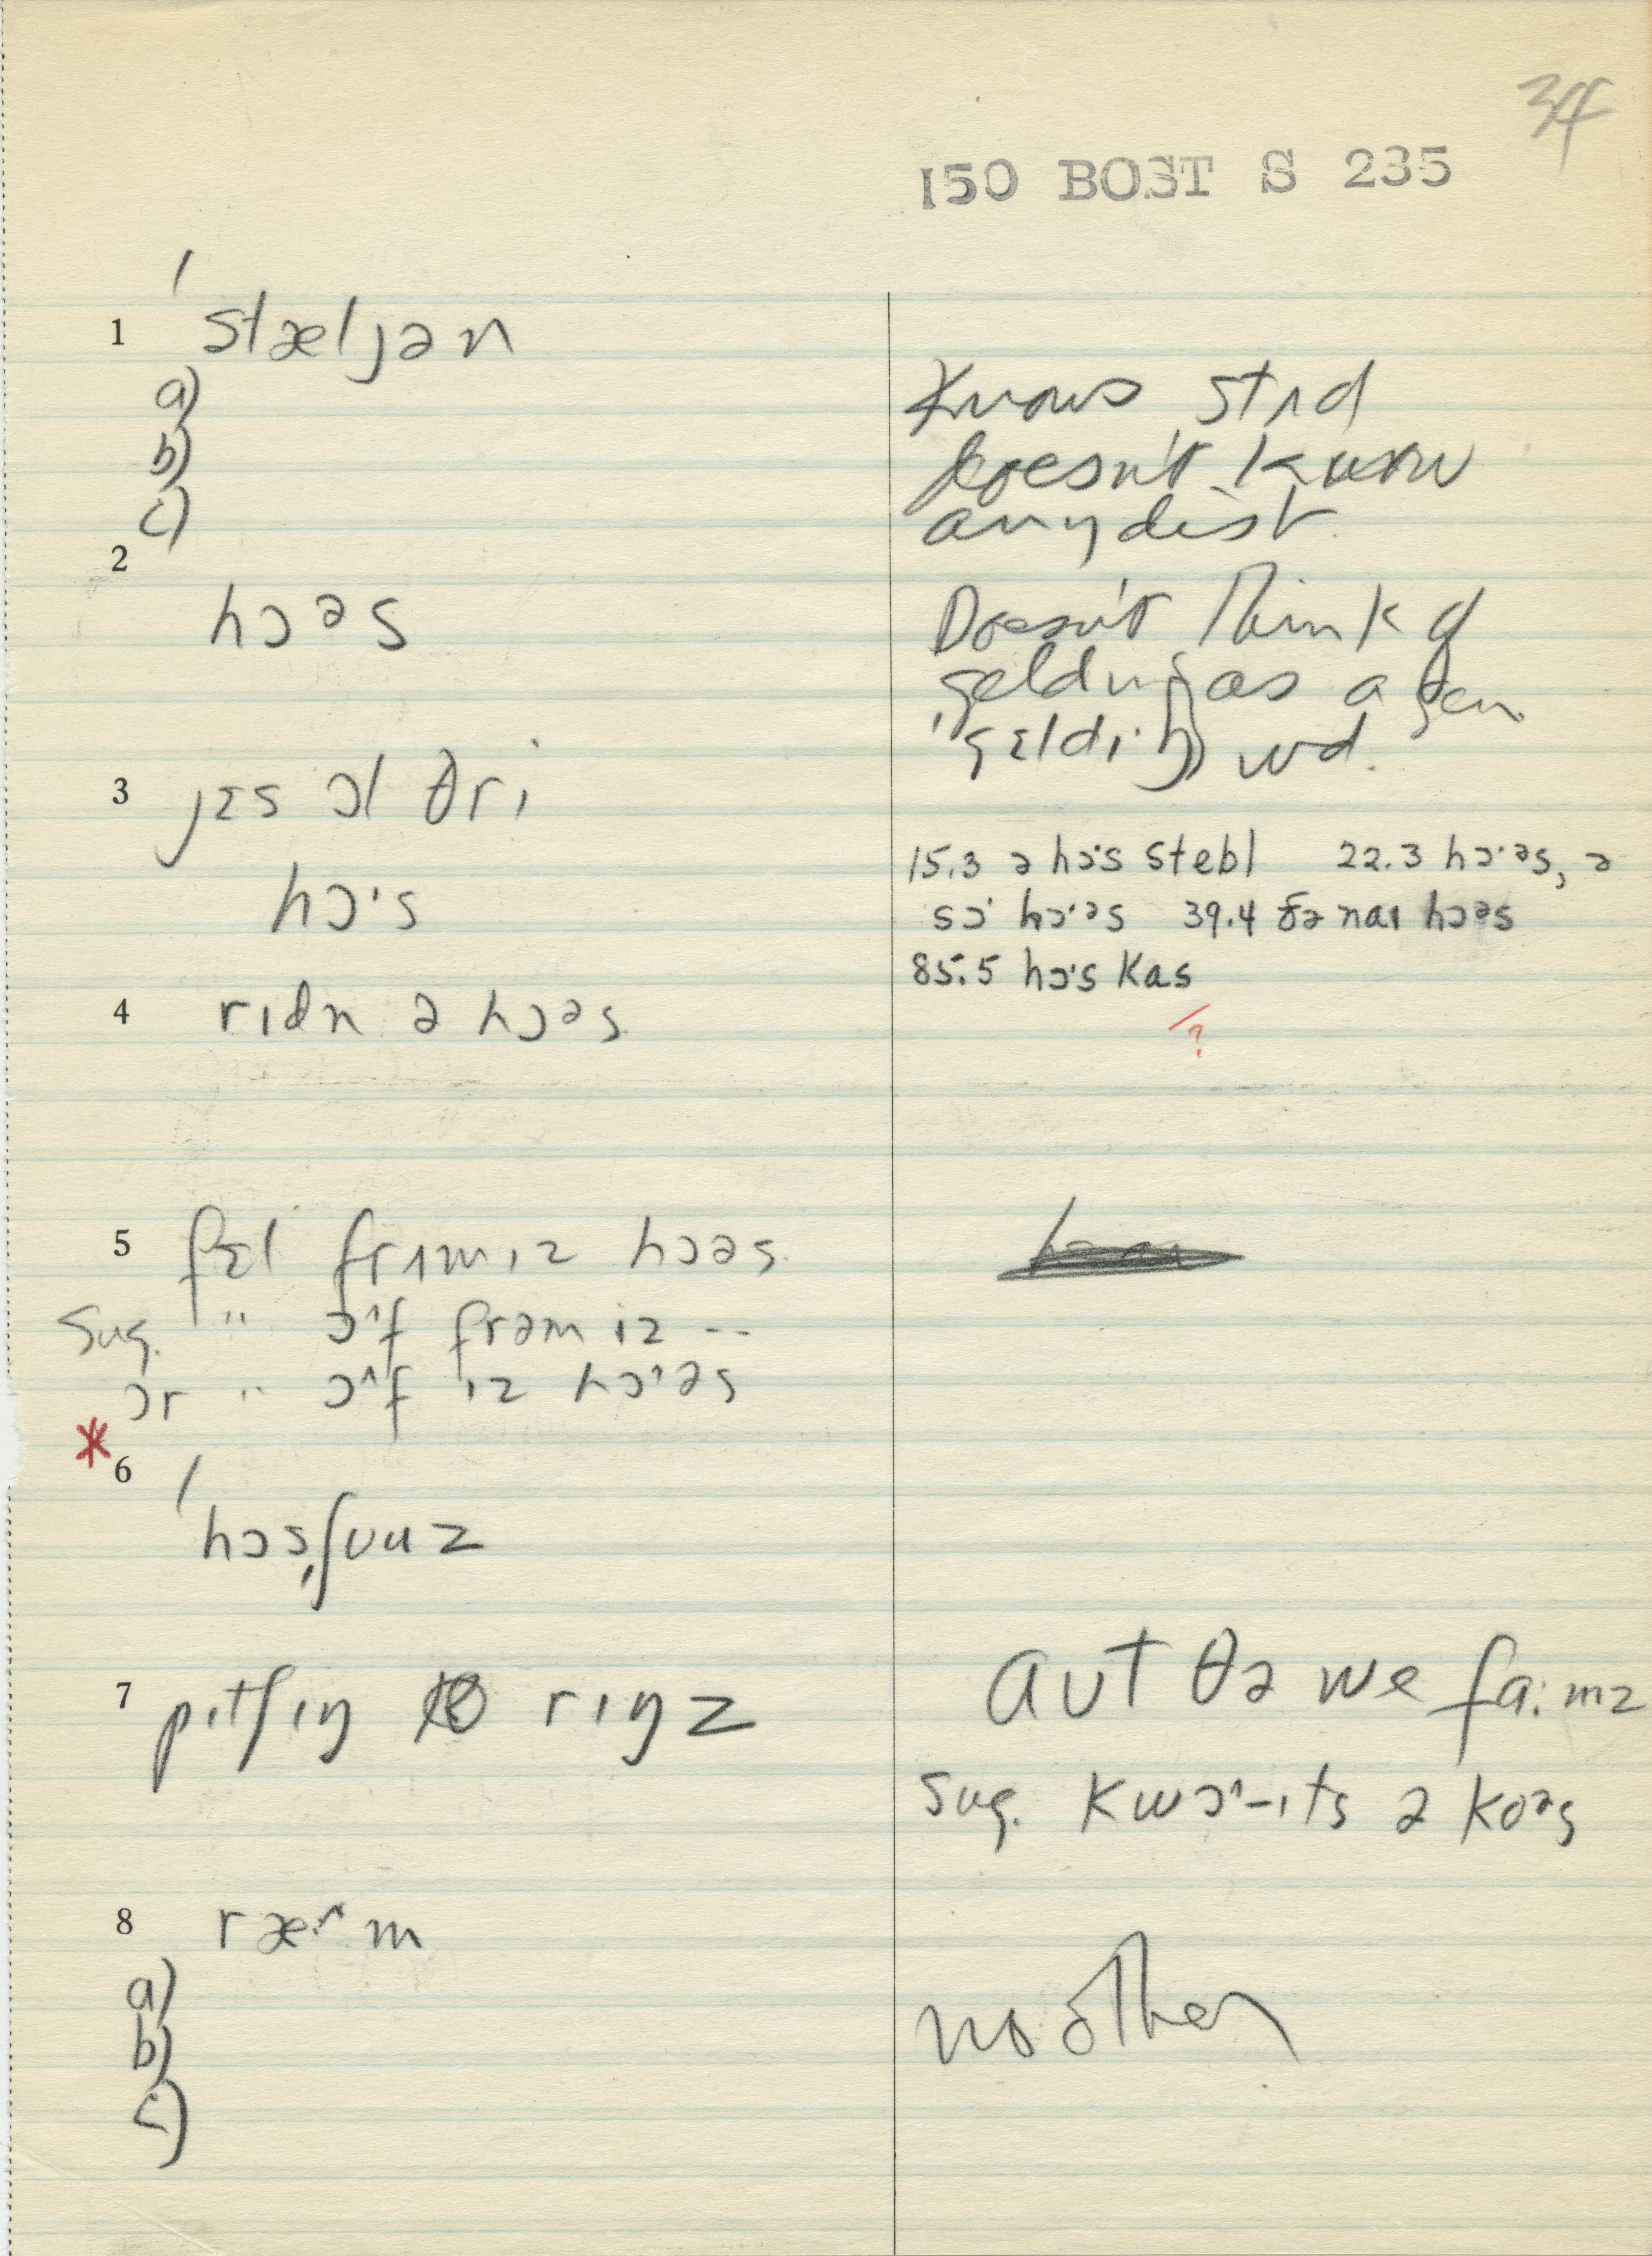 34
150 BOST S 235
1 / stæljən
a)
b)
c)
Knows stʌd
Doesn't know
any dist.
2
hɔəs
Doesn't think of
gelding as a gen.
'gɛldɪŋ wd.
3 jɛs ɔl θri
hɔ·s
15.3 ə hɔ·s stebl 22.3 hɔ·əs, ə
sɔ· hɔ·əs 39.4 ðə naɪ hɔəs
85.5 hɔ·s kas
4 rɪdn ə hɔəs
?
5 fɛl frʌm ɪz hɔəs
Sug. " ɔ^f frəm ɪz --
or " ɔ^f ɪz hɔ·əs
* 6 /
'hɔsˌʃuuz
7 pɪtʃɪŋ rɪŋz
aʊt θə we fa:mz
Sug. kwɔ^-ɪts ə koəs
8 ræ·^m
a)
b)
c)
no other